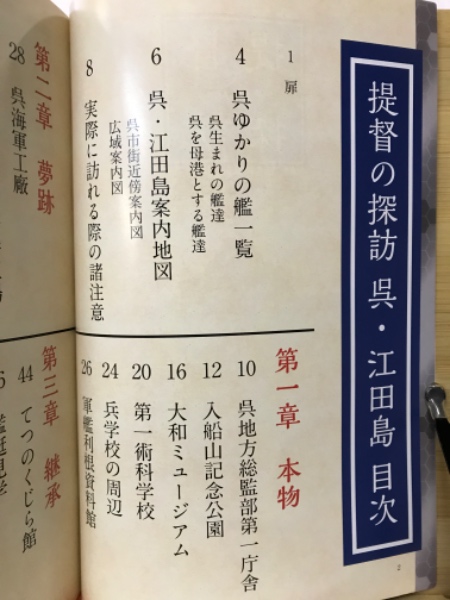 提督の探訪 呉・江田島 目次
1 扉
4 呉ゆかりの艦一覧
呉生まれの艦達
呉を母港とする艦達
6 呉・江田島案内地図
呉市街近傍案内図
広域案内図
8 実際に訪れる際の諸注意
第一章 本物
10 呉地方総監部第一庁舎
12 入船山記念公園
16 大和ミュージアム
20 第一術科学校
24 兵学校の周辺
26 軍艦利根資料館
第二章 夢跡
28 呉海軍工廠
第三章 継承
44 てつのくじら館
2